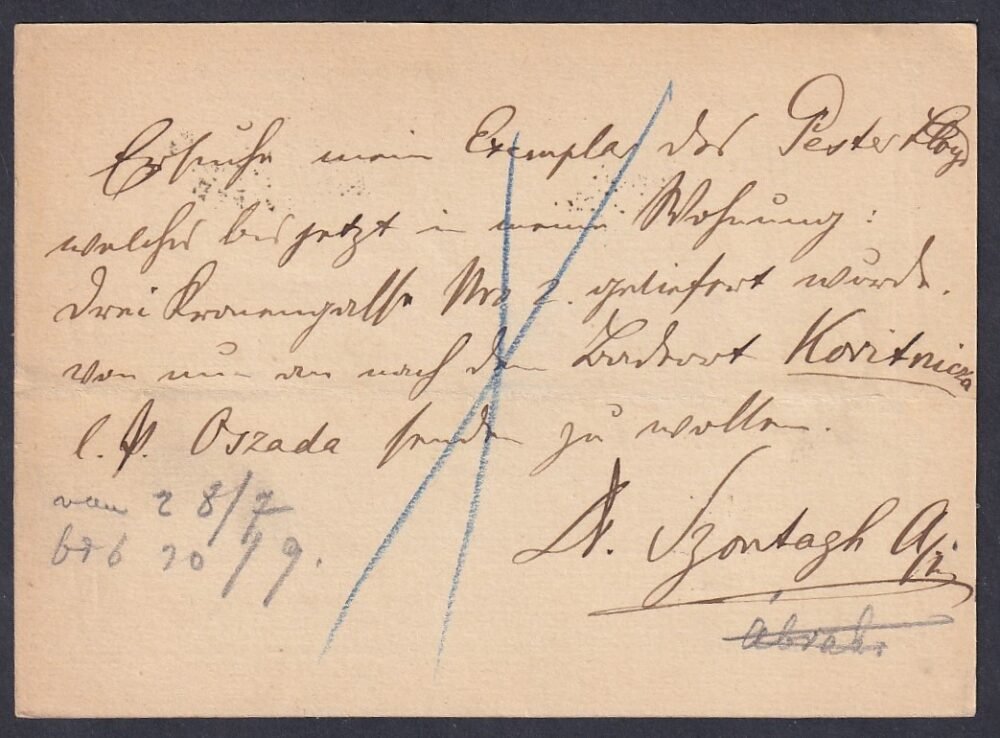 Ersuche mein Exemplar des Pester Lloyd
welches bis jetzt in meine Wohnung:
Drei Kronengasse Nro 2. geliefert wurde.
von nun an nach dem Badeort Koritnicza
l. P. Oszada senden zu wollen.
Dr. Szontagh A
von 28/7
bis 10/9.